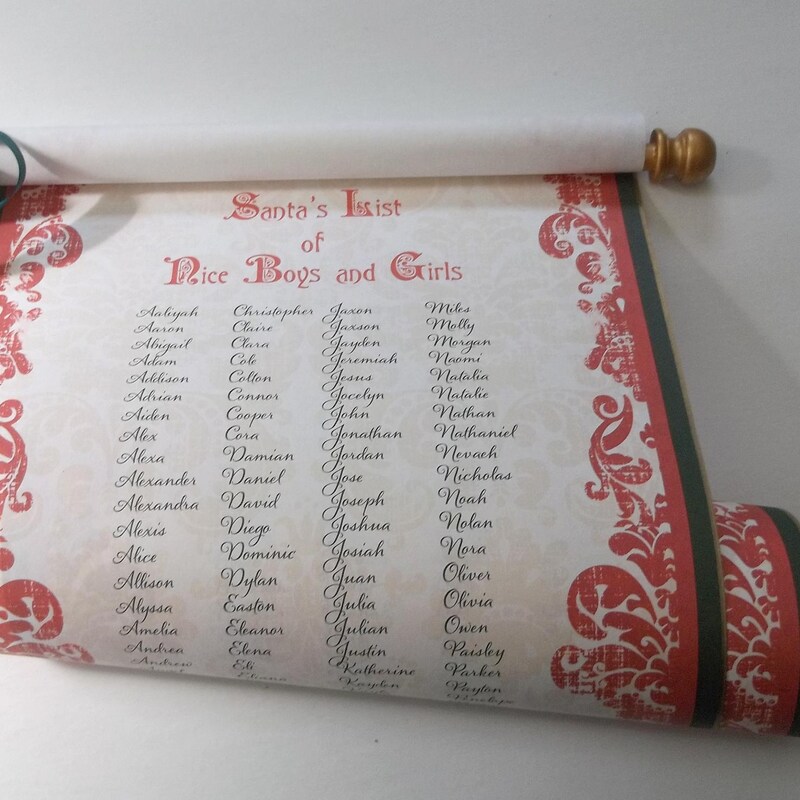 Santa's List
of
Nice Boys and Girls
Aaliyah Christopher Jaxon Miles
Aaron Claire Jaxson Molly
Abigail Clara Jayden Morgan
Adam Cole Jeremiah Naomi
Addison Colton Jesus Natalia
Adrian Connor Jocelyn Natalie
Aiden Cooper John Nathan
Alex Cora Jonathan Nathaniel
Alexa Damian Jordan Nevaeh
Alexander Daniel Jose Nicholas
Alexandra David Joseph Noah
Alexis Diego Joshua Nolan
Alice Dominic Josiah Nora
Allison Dylan Juan Oliver
Alyssa Easton Julia Olivia
Amelia Eleanor Julian Owen
Andrea Elena Justin Paisley
Andrew Eli Katherine Parker
Eliana Kayden Payton
Penelope